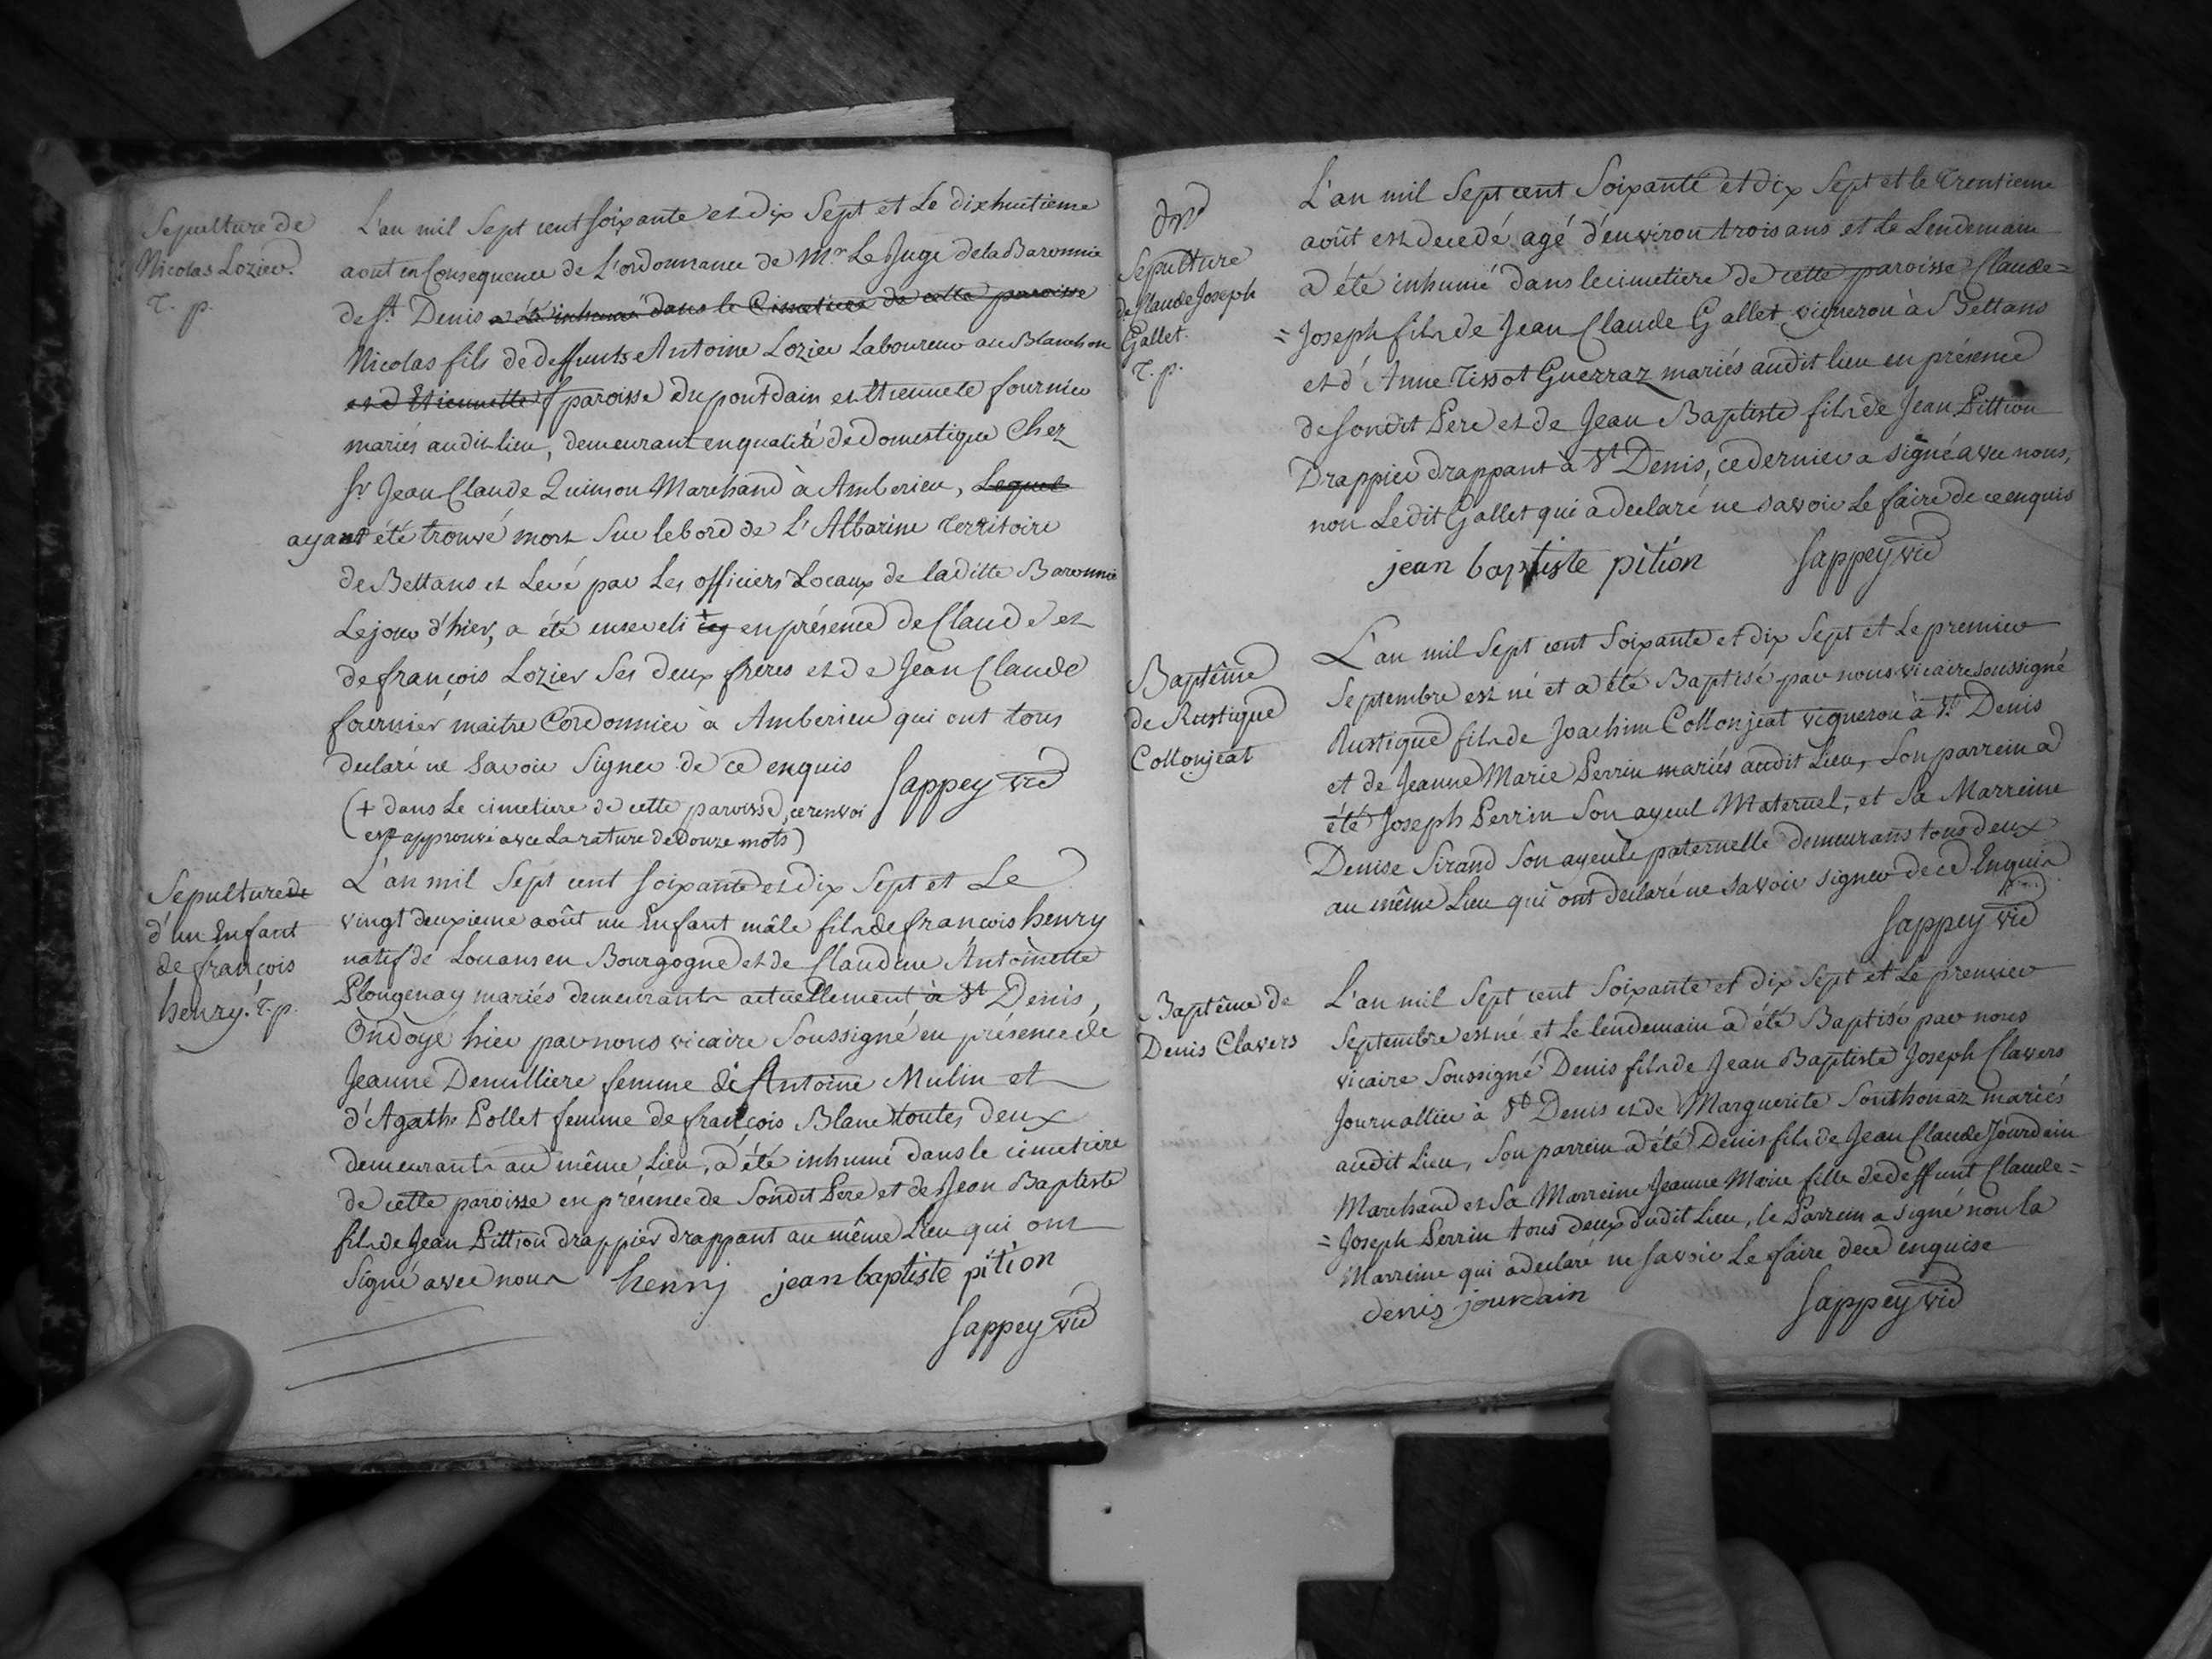 Sepulture de
Nicolas Lozier.
T. p.
L'an mil Sept cent soixante et dix Sept et Le dixhuitieme
aout en Consequence de L'ordonnance de Mr Le Juge de la Baronnie
de St Denis a été inhumé dans le Cimetiere de cette paroisse
Nicolas fils de deffunts Antoine Lozier Laboureur au Blanchon
et d'Etiennette paroisse du pontdain et Etiennete fournier
mariés audit lieu, demeurant en qualité de Domestique Chez
Sr Jean Claude Quinson Marchand à Amberieu, Lequel
ayant été trouvé mort Sur le bord de L'Albarine Territoire
de Bettans et Levé par Les officiers Locaux de la ditte Baronnie
Le jour d'hier, a été enseveli + icy en présence de Claude et
de françois Lozier Ses deux frères et de Jean Claude
fournier maitre Cordonnier à Amberieu qui ont tous
declaré ne Savoir Signer de ce enquis
Sappey vic
(+ dans Le cimetiere de cette paroisse, ce renvoi
est approuvé avec La rature de Douze mots)
Sepulture de
d'un Enfant
de françois
henry. T. p.
L'an mil Sept cent soixante et dix Sept et Le
vingt deuxieme août un Enfant mâle fils de françois henry
natif de Louans en Bourgogne et de Claudine Antoinette
Plongenay mariés demeurants actuellement à St Denis,
Ondoyé hier par nous vicaire Soussigné en présence de
Jeanne Demilliere femme de Antoine Mulin et
d'Agathe Pollet femme de françois Blanc toutes deux
demeurants au même Lieu, a été inhumé dans le cimetiere
de cette paroisse en présence de Sondit Pere et de Jean Baptiste
fils de Jean Pittion drappier drappant au même Lieu qui ont
Signé avec nous henrj jean baptiste pition
Sappey vic
Sepulture
de Claude Joseph
Gallet.
T. p.
L'an mil Sept cent Soixante et dix Sept et le Trentieme
août est decedé agé d'environ trois ans et le Lendemain
a été inhumé dans le cimetiere de cette paroisse Claude=
=Joseph fils de Jean Claude Gallet vigneron à Bettans
et d'Anne Tissot Guerraz mariés audit lieu en présence
de Sondit Pere et de Jean Baptiste fils de Jean Pittion
Drappier drappant à St Denis, ce dernier a signé avec nous,
non Ledit Gallet qui a declaré ne savoir Le faire de ce enquis
jean baptiste pition Sappey vic
Baptême
de Rustique
Collonjeat
L'an mil Sept cent Soixante et dix Sept et Le premier
Septembre est né et a été Baptisé par nous vicaire soussigné
Rustique fils de Joachim Collonjeat vigneron à St Denis
et de Jeanne Marie Perrin mariés audit Lieu, Son parrein a
été Joseph Perrin Son ayeul Maternel, et Sa Marreine
Denise Sirand Son ayeule paternelle demeurans tous deux
au même Lieu qui ont declaré ne savoir signer de ce Enquis
Sappey vic
Baptême de
Denis Clavers
L'an mil Sept cent Soixante et dix Sept et Le premier
Septembre est né et Le lendemain a été Baptisé par nous
vicaire Soussigné Denis fils de Jean Baptiste Joseph Clavers
Journallier à St Denis et de Marguerite Southonaz mariés
audit Lieu, Son parrein a été Denis fils de Jean Claude Jourdain
Marchand et Sa Marreine Jeanne Marie fille de deffunt Claude=
=Joseph Perrin tous deux dudit Lieu, le Parrein a signé non la
Marreine qui a declaré ne Savoir Le faire de ce enquise
denis jourdain Sappey vic